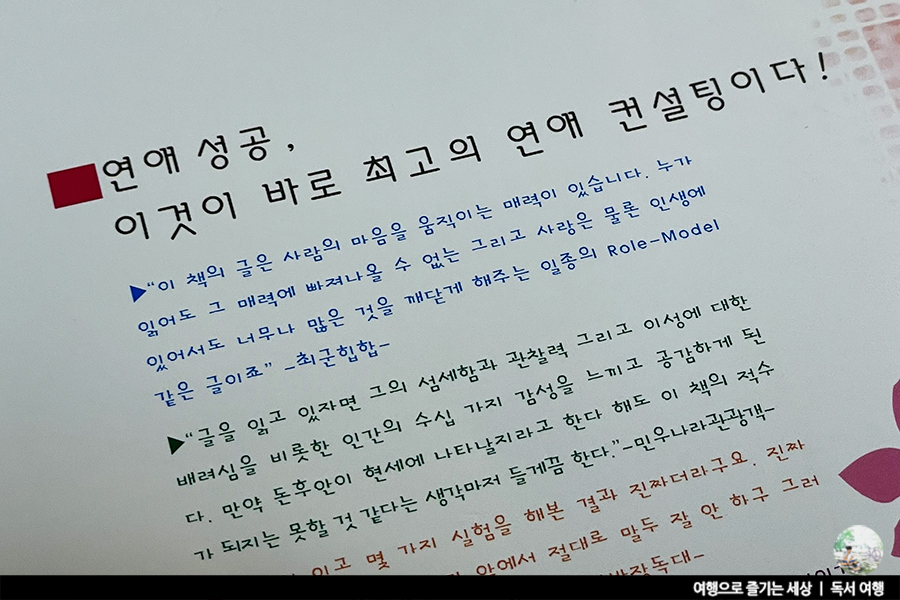 연애 성공,
이것이 바로 최고의 연애 컨설팅이다!
▶“이 책의 글은 사람의 마음을 움직이는 매력이 있습니다. 누가
읽어도 그 매력에 빠져나올 수 없는 그리고 사랑은 물론 인생에
있어서도 너무나 많은 것을 깨닫게 해주는 일종의 Role-Model
같은 글이죠” -최군힙합-
▶“글을 읽고 있자면 그의 섬세함과 관찰력 그리고 이성에 대한
배려심을 비롯한 인간의 수십 가지 감성을 느끼고 공감하게 된
다. 만약 돈후안이 현세에 나타날지라고 한다 해도 이 책의 적수
가 되지는 못할 것 같다는 생각마저 들게끔 한다.”-민우나라관광객-
읽고 몇 가지 실험을 해본 결과 진짜더라구요. 진짜
앞에서 절대로 말두 잘 안 하구 그러
여행으로 즐기는 세상 | 독서 여행